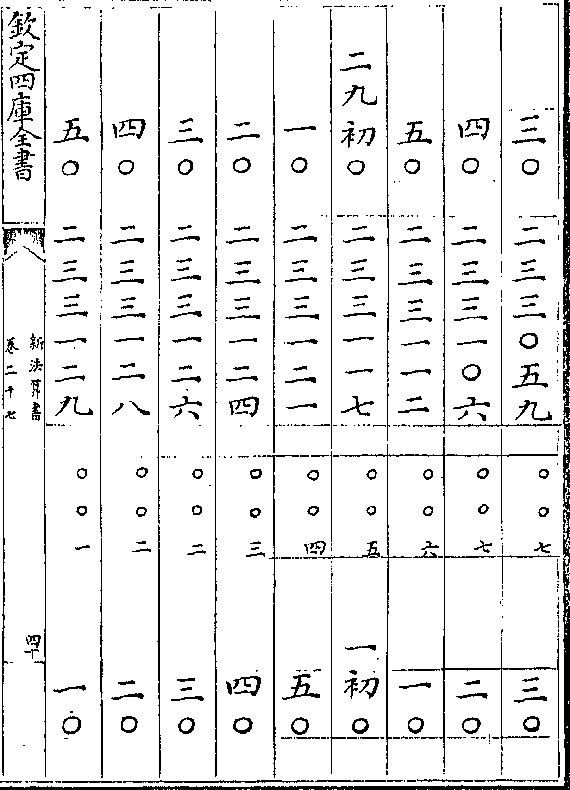 三〇 二三三〇五九 〇〇七 三〇
四〇 二三三一〇六 〇〇七 二〇
五〇 二三三一一二 〇〇六 一〇
二九初〇 二三三一一七 〇〇五 一初〇
一〇 二三三一二一 〇〇四 五〇
二〇 二三三一二四 〇〇三 四〇
三〇 二三三一二六 〇〇二 三〇
四〇 二三三一二八 〇〇二 二〇
五〇 二三三一二九 〇〇一 一〇
欽定四庫全書
新法算書
卷二十七
四十